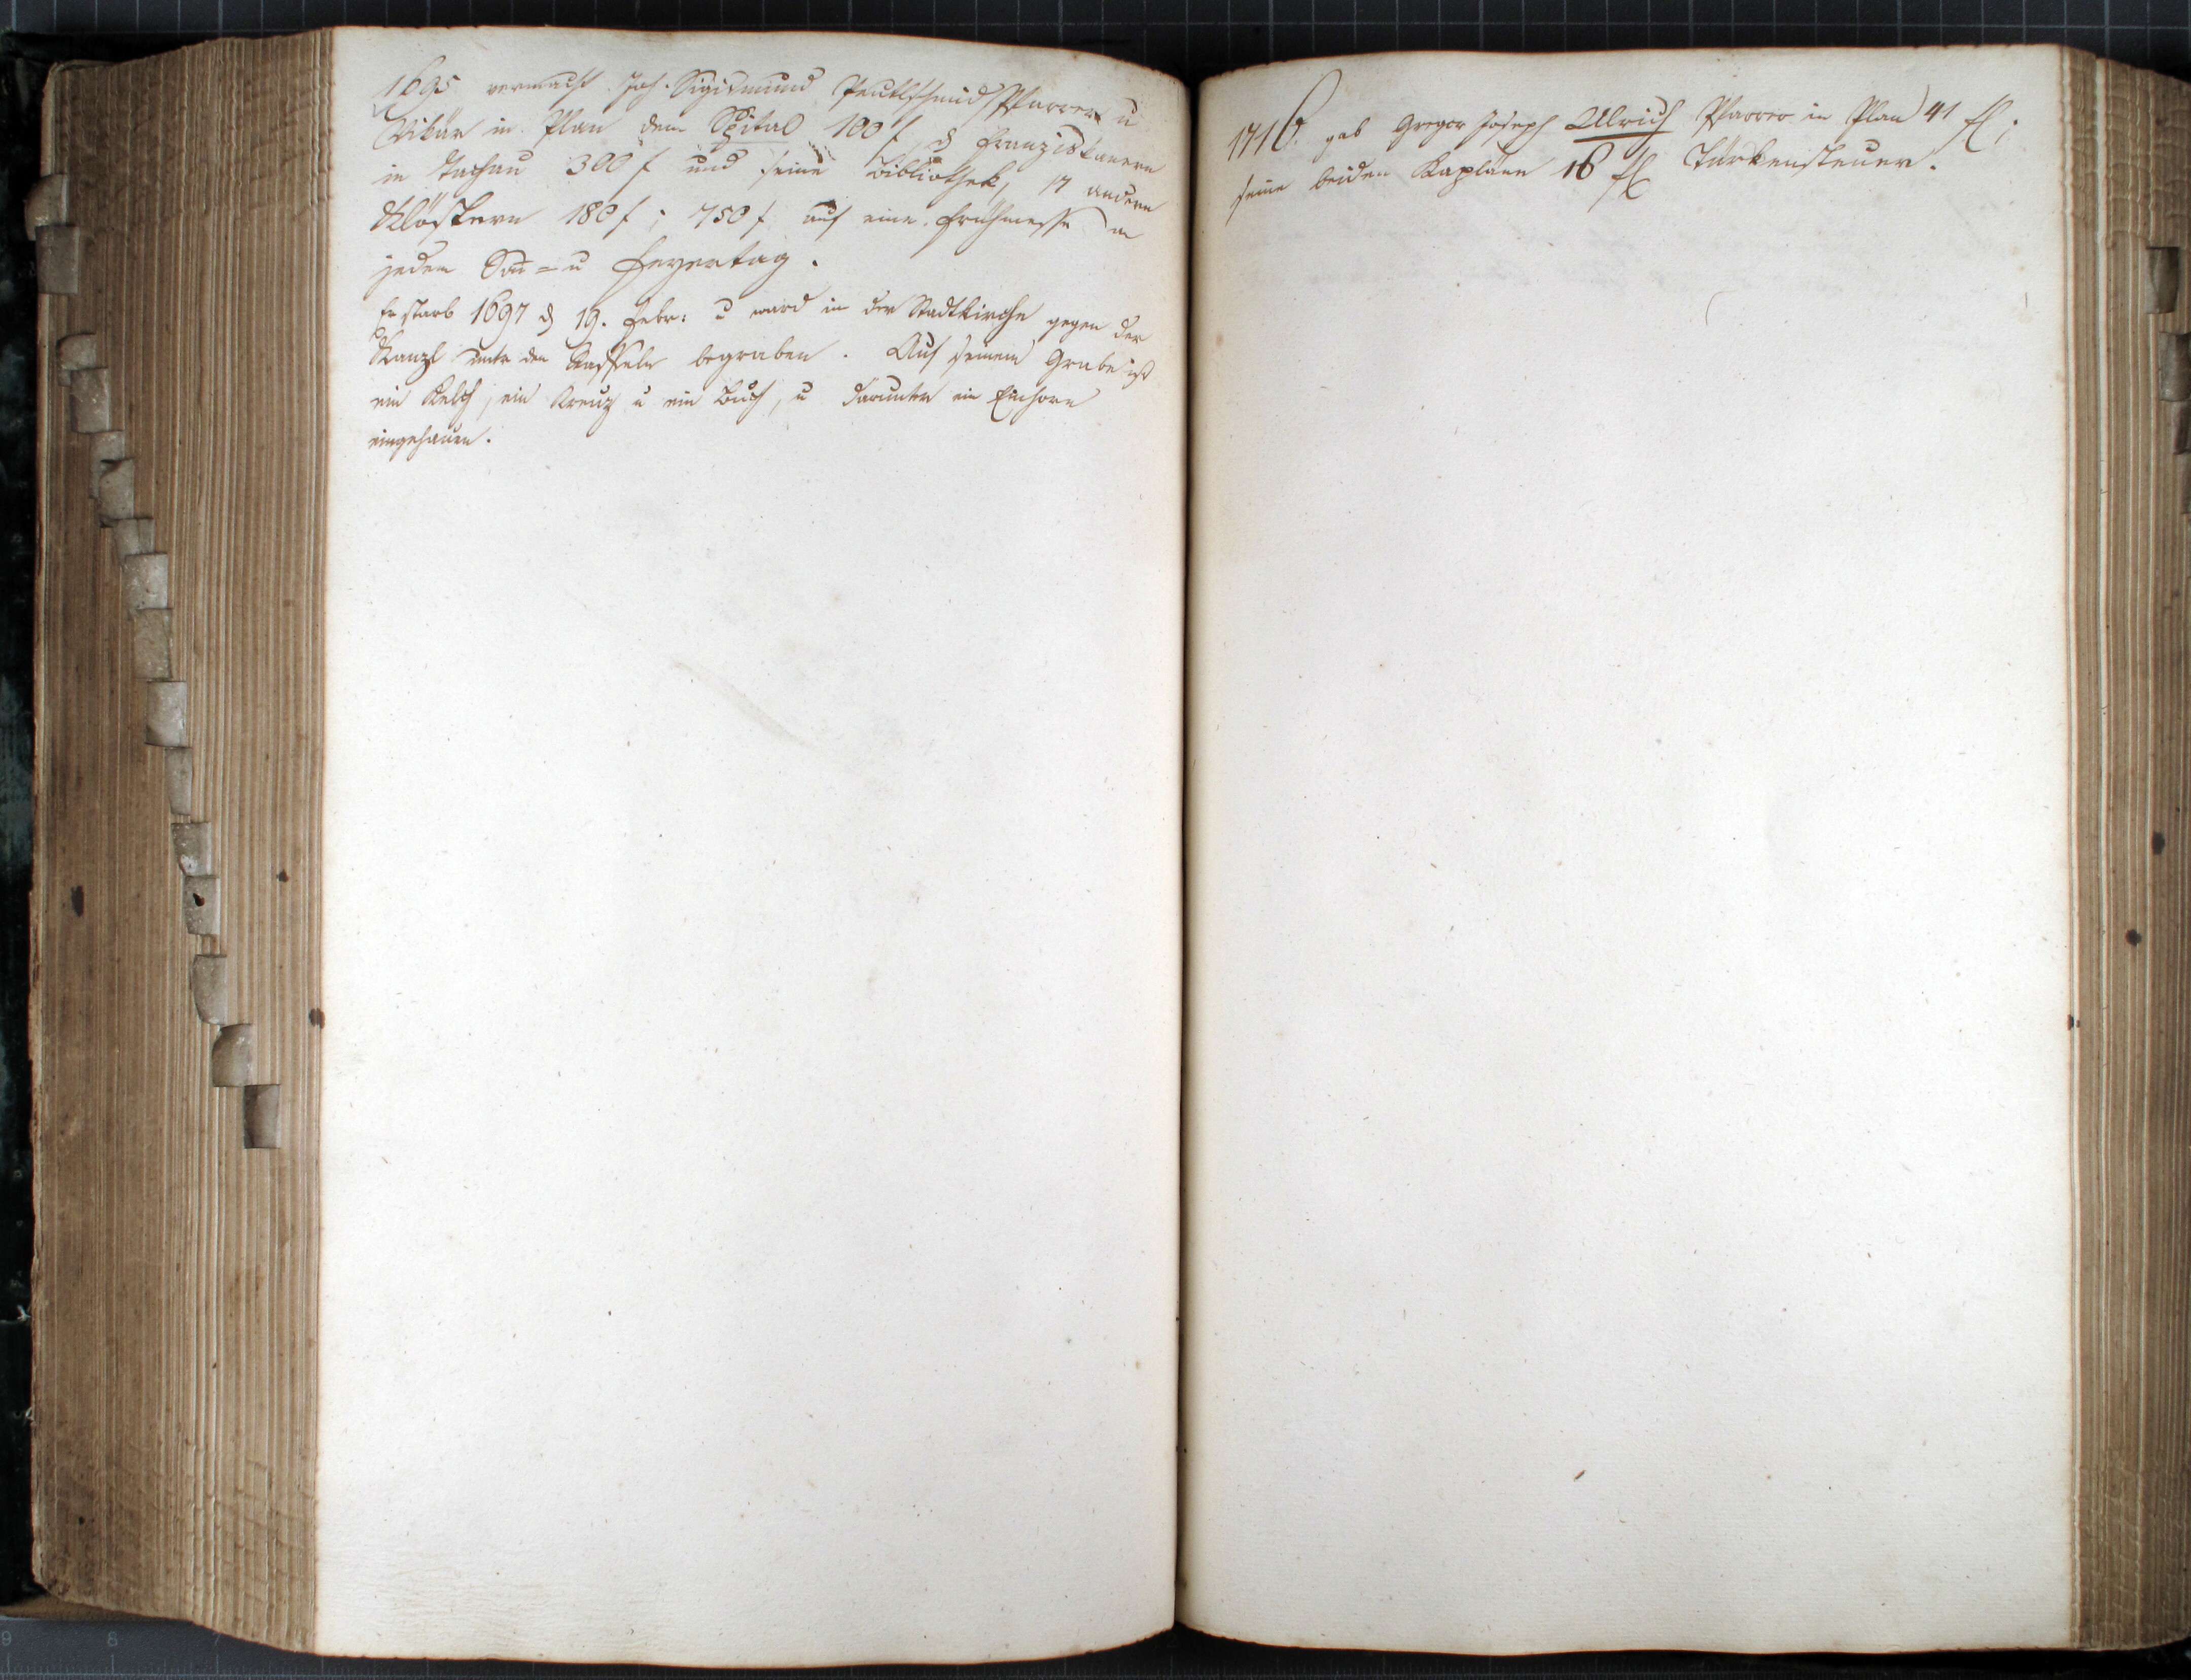 1695 vermacht Joh. Sigismund Peutlschmid Pfarrer u
Vikär in Plan dem Spital 100 f, d Franziskanern
in Tachau 300 f und seine Bibliothek, 17 andern
Klöstern 180 f; 750 f auf eine Frühmesse an
jedem Soñ= u Feyertag.
Er starb 1697 d 19. Febr: u ward in der Stadtkirche gegen der
Kanzl unter den begraben. Auf seinem Grabe ist
ein Kelch, ein Kreuz u ein Buch, u darunter ein Einhorn
eingehauen.
1716. gab Gregor Joseph Ulrich Pfarrer in Plan 41 fl;
seine beiden Kaplänn 16 fl Türkensteuer.